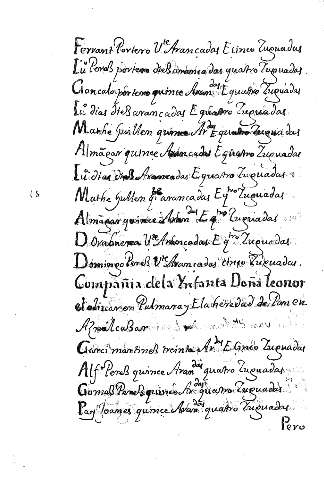 Ferrant Portero Vte Arancadas E cinco Zuguadas
Iuo Peres portero dies arancadas quatro Zuguadas
Goncalo portero quince Arandas E quatro Zuguadas
Iuo dias dies arancadas E quatro Zuguadas
Mathe Guillen quince Ar E quatro Zuguadas
Almagar quince Arancadas E quatro Zuguadas
Iuo dias dies Arancadas E quatro Zuguadas
Mathe Guillen arancadas E qtro Zuguadas
Almagar quince Arandas E qtro Zuguadas
Vte Arancadas E qtro Zuguadas
Domingo Peres Vte Arancadas cinco Zuguadas
Compañia dela Ynfanta Doña leonor
el olivar en Pulmar y Ela heredad de Pan en
Aznalcasar
Garci martines treinta Ardas E Cinco Zuguadas
Alfo Peres quince Arandas quatro Zuguadas
Gomes Peres quince Arandas quatro Zuguadas
Pay Joanes quince Arandas quatro Zuguadas
Pero